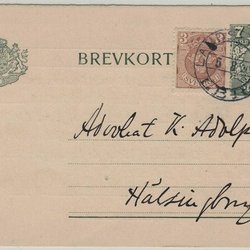 BREVKORT
3
7
Advokat K. Adolp
Hälsingborg